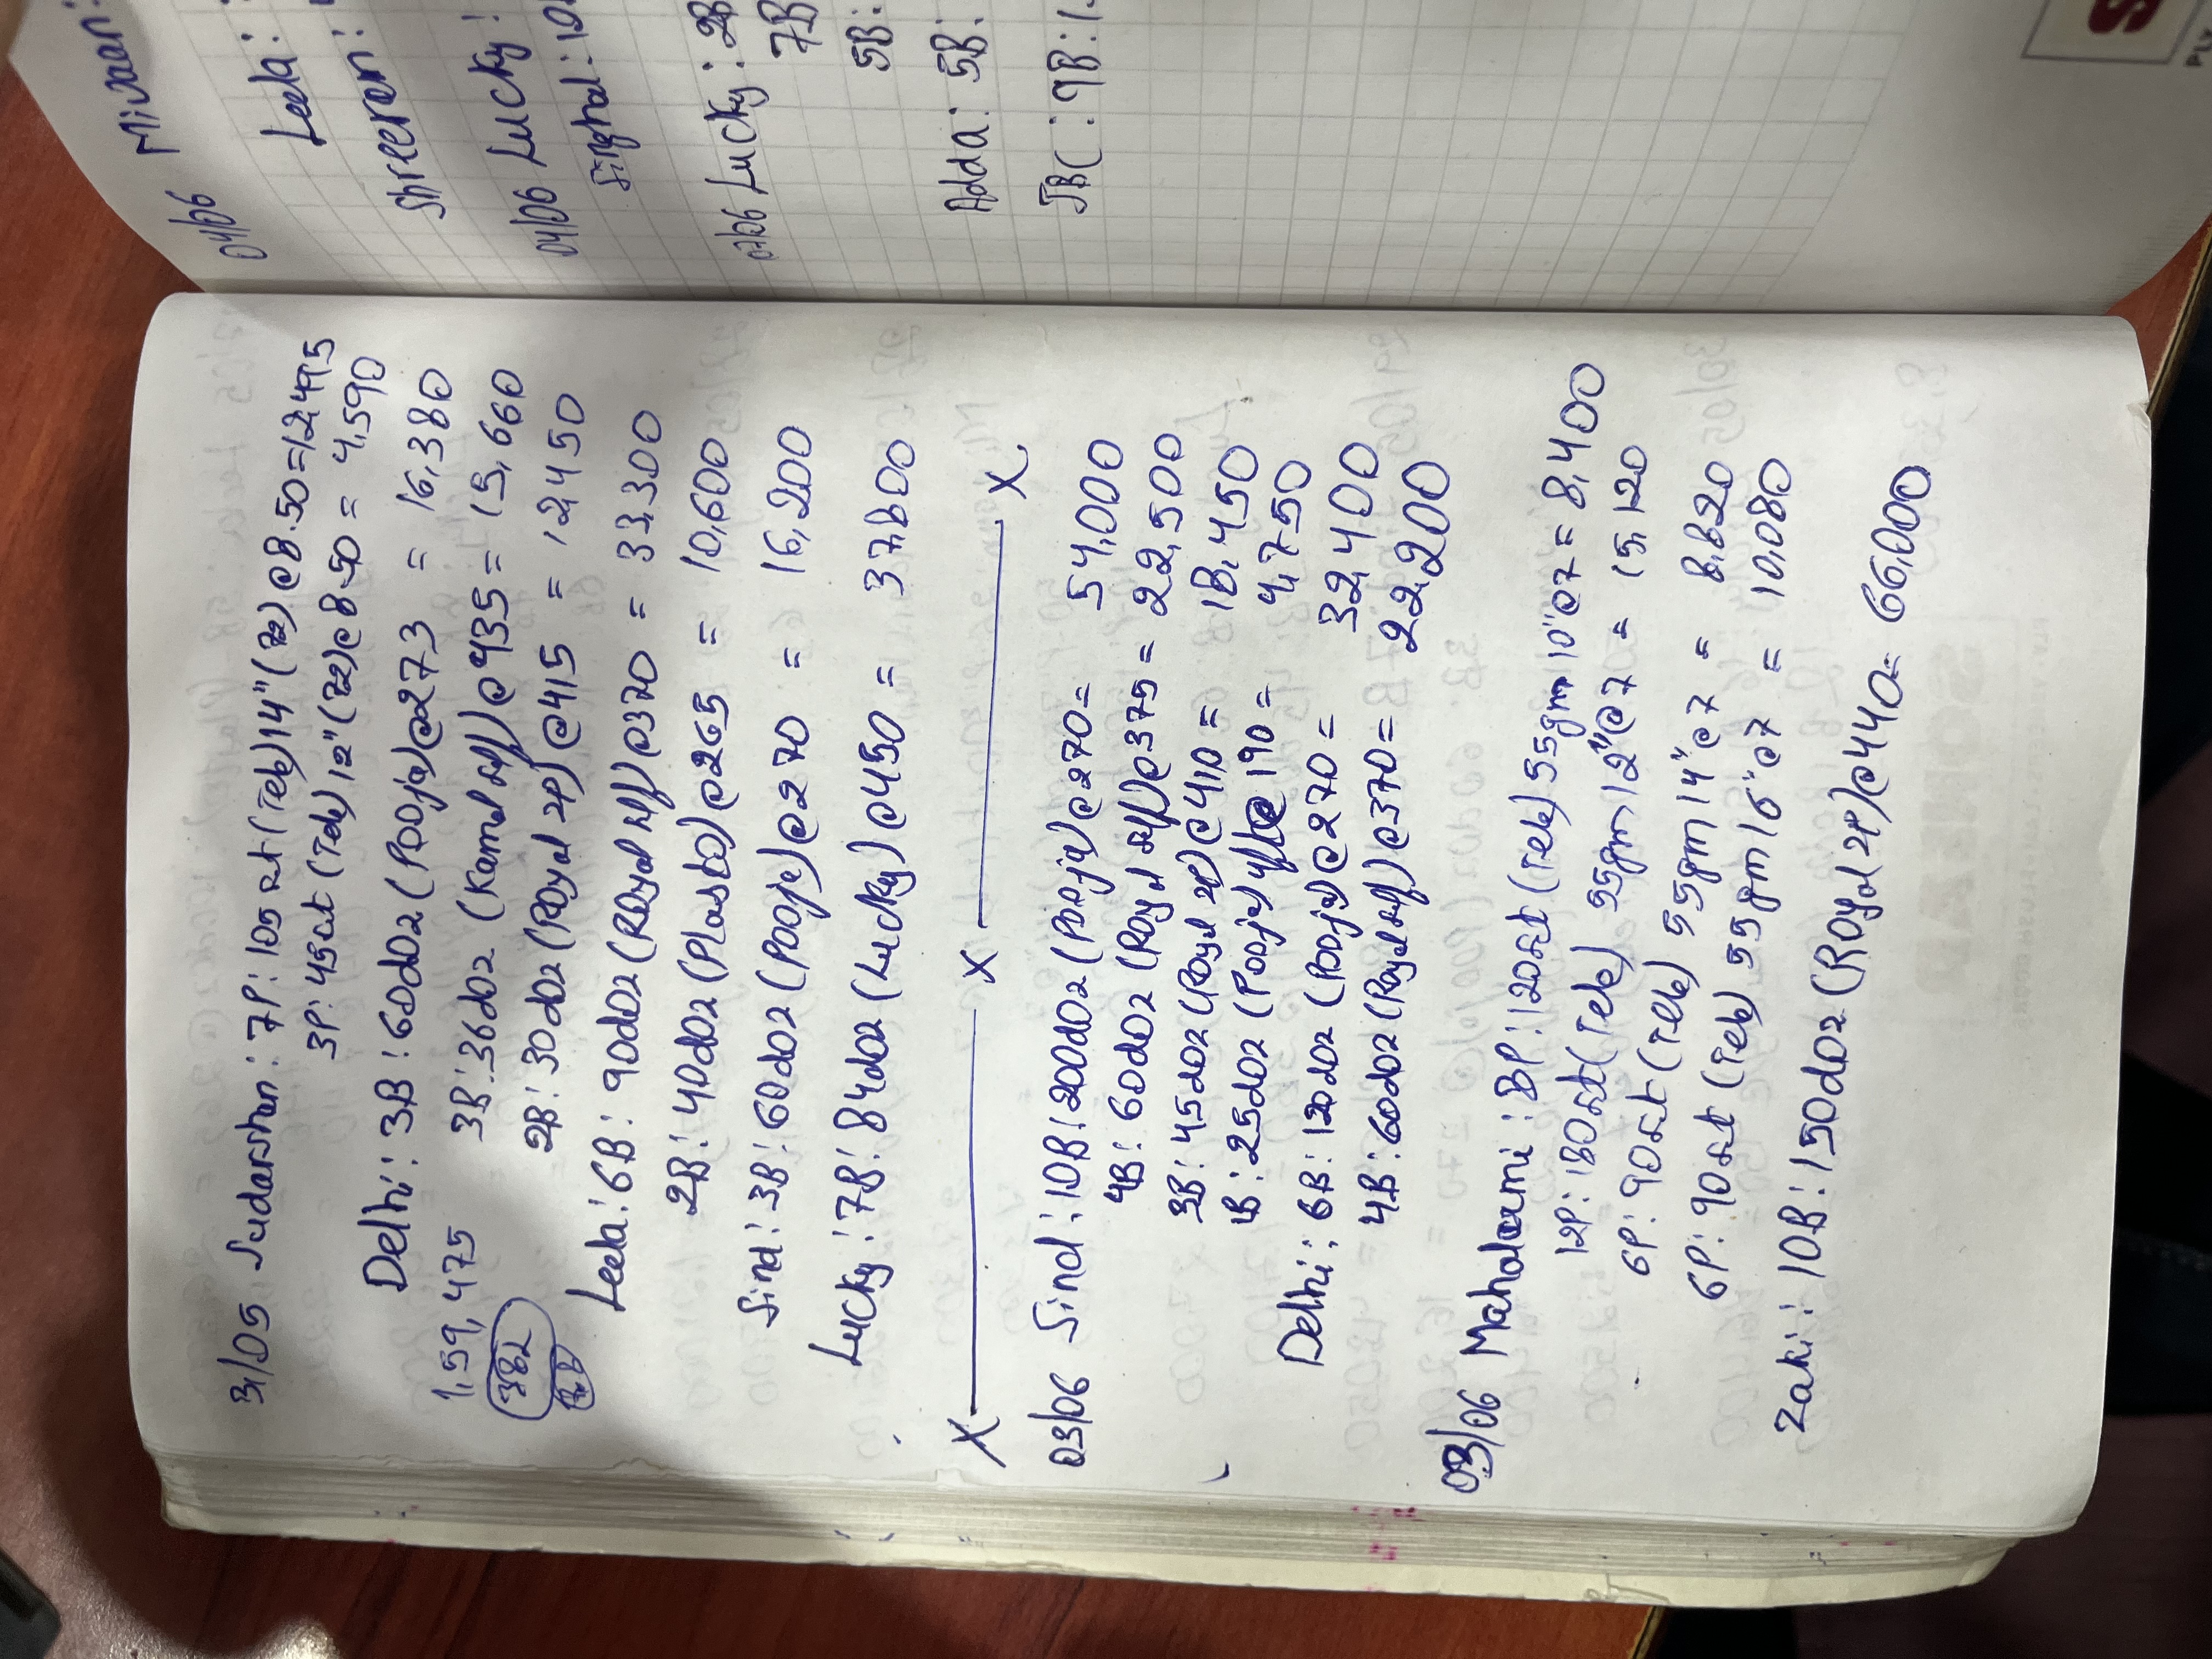 31/05 Sudarshan : 7P : 105 set (Tele) 14" (72) @8.50 = 12,495
3P : 45 set (Tele) 12" (72) @8.50 = 4,590
Delhi : 3B : 60doz (Pooja) @273 = 16,380
1,59,475 3B : 36doz (Kamal) @435 = 15,660
382
2B : 30doz (Royal 24) @415 = 12,450
Leela : 6B : 90doz (Royal) @370 = 33,300
2B : 40doz (Plasto) @265 = 10,600
Sind : 3B : 60doz (Pooja) @270 = 16,200
Lucky : 7B : 84doz (Lucky) @450 = 37,800
X X X
03/06 Sind : 10B : 200doz (Pooja) @270 = 54,000
4B : 60doz (Royal) @375 = 22,500
3B : 45doz (Royal 24) @410 = 18,450
1B : 25doz (Pooja) @190 = 4,750
Delhi : 6B : 120doz (Pooja) @270 = 32,400
4B : 60doz (Royal) @370 = 22,200
03/06 Mahalaxmi : 8P : 120set (Tele) 55gm 10" @7 = 8,400
12P : 180set (Tele) 55gm 12" @7 = 15,120
6P : 90set (Tele) 55gm 14" @7 = 8,820
6P : 90set (Tele) 55gm 16" @7 = 10,080
Zaki : 10B : 150doz (Royal 24) @440 = 66,000
04/06 Mivaan :
Leela :
Shreeram :
04/06 Lucky :
Singhal :
07/06 Lucky : 2B
7B
5B :
Adda : 5B :
JBC : 9B :